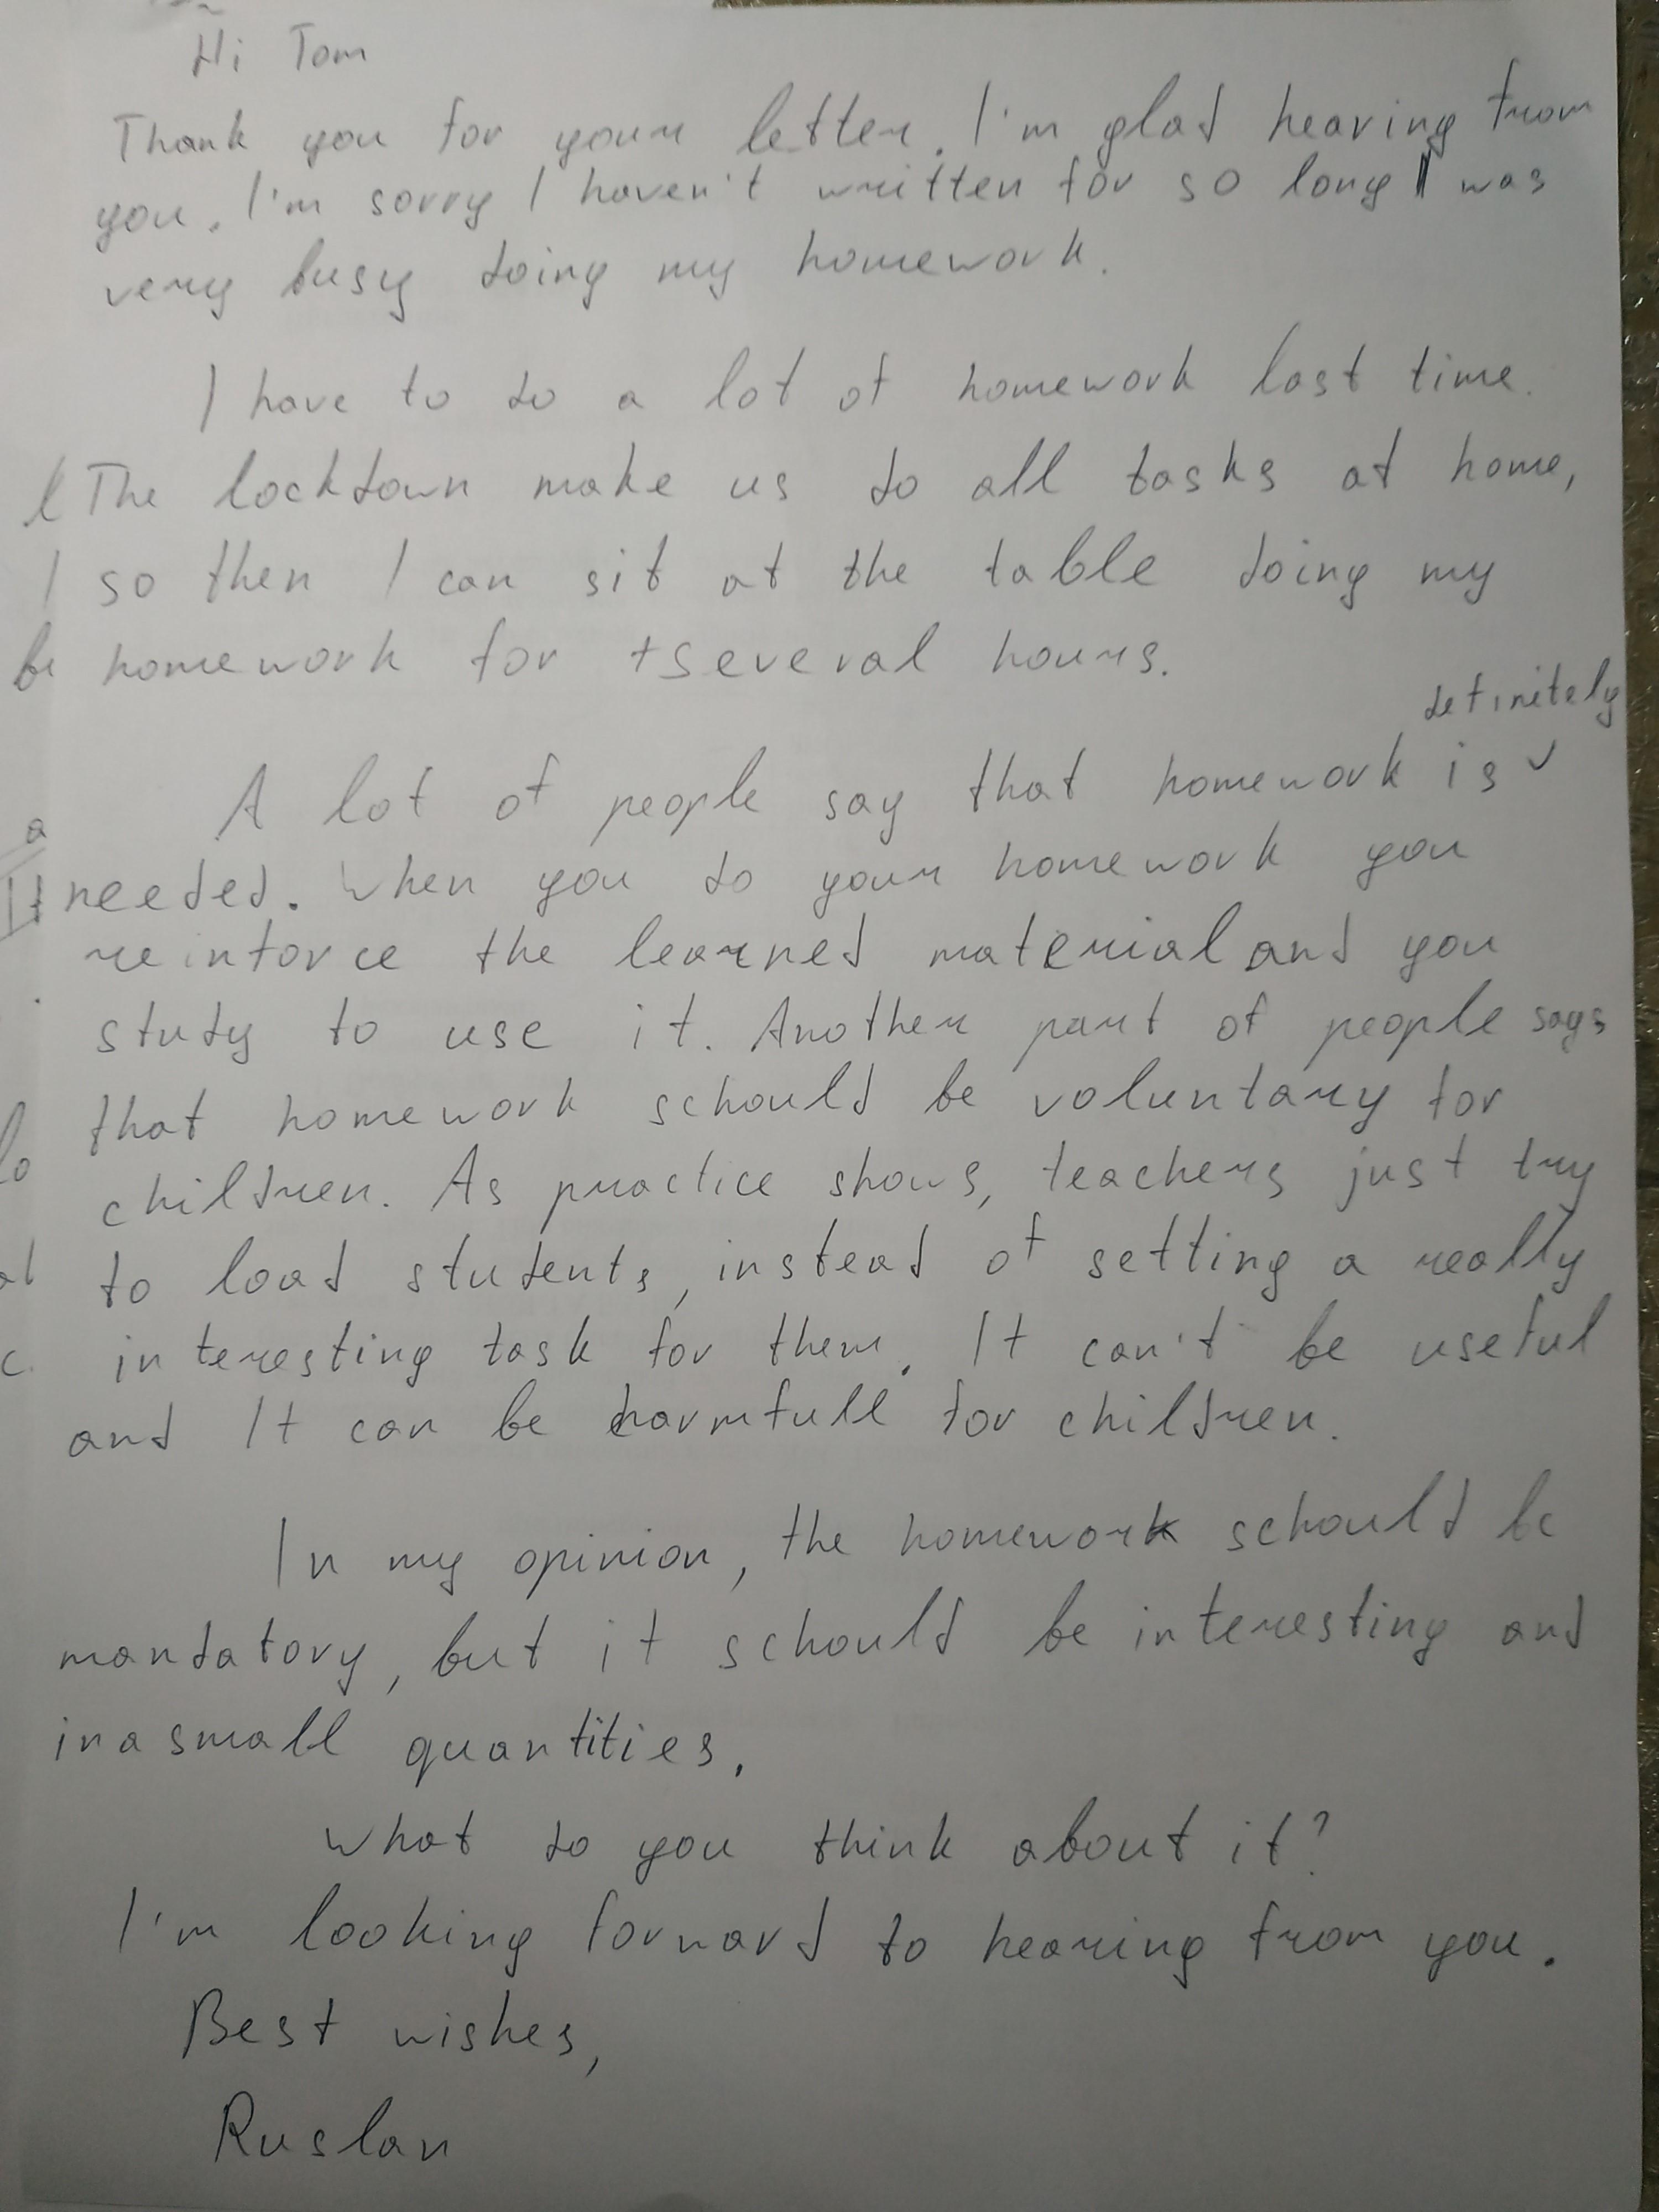 Hi Tom
Thank you for your letter. I'm glad hearing from
you. I'm sorry I haven't written for so long I was
very busy doing my homework.
I have to do a lot of homework last time.
The lockdown make us do all tasks at home,
so then I can sit at the table doing my
homework for several hours.
definitely
A lot of people say that homework is ✓
needed. When you do your homework you
reinforce the learned material and you
study to use it. Another part of people says
that homework schould be voluntary for
children. As practice shows, teachers just try
to load students, instead of setting a really
interesting task for them. It can't be useful
and It can be harmfull for children.
In my opinion, the homework schould be
mandatory, but it schould be interesting and
in a small quantities.
What do you think about it?
I'm looking forward to hearing from you.
Best wishes,
Ruslan